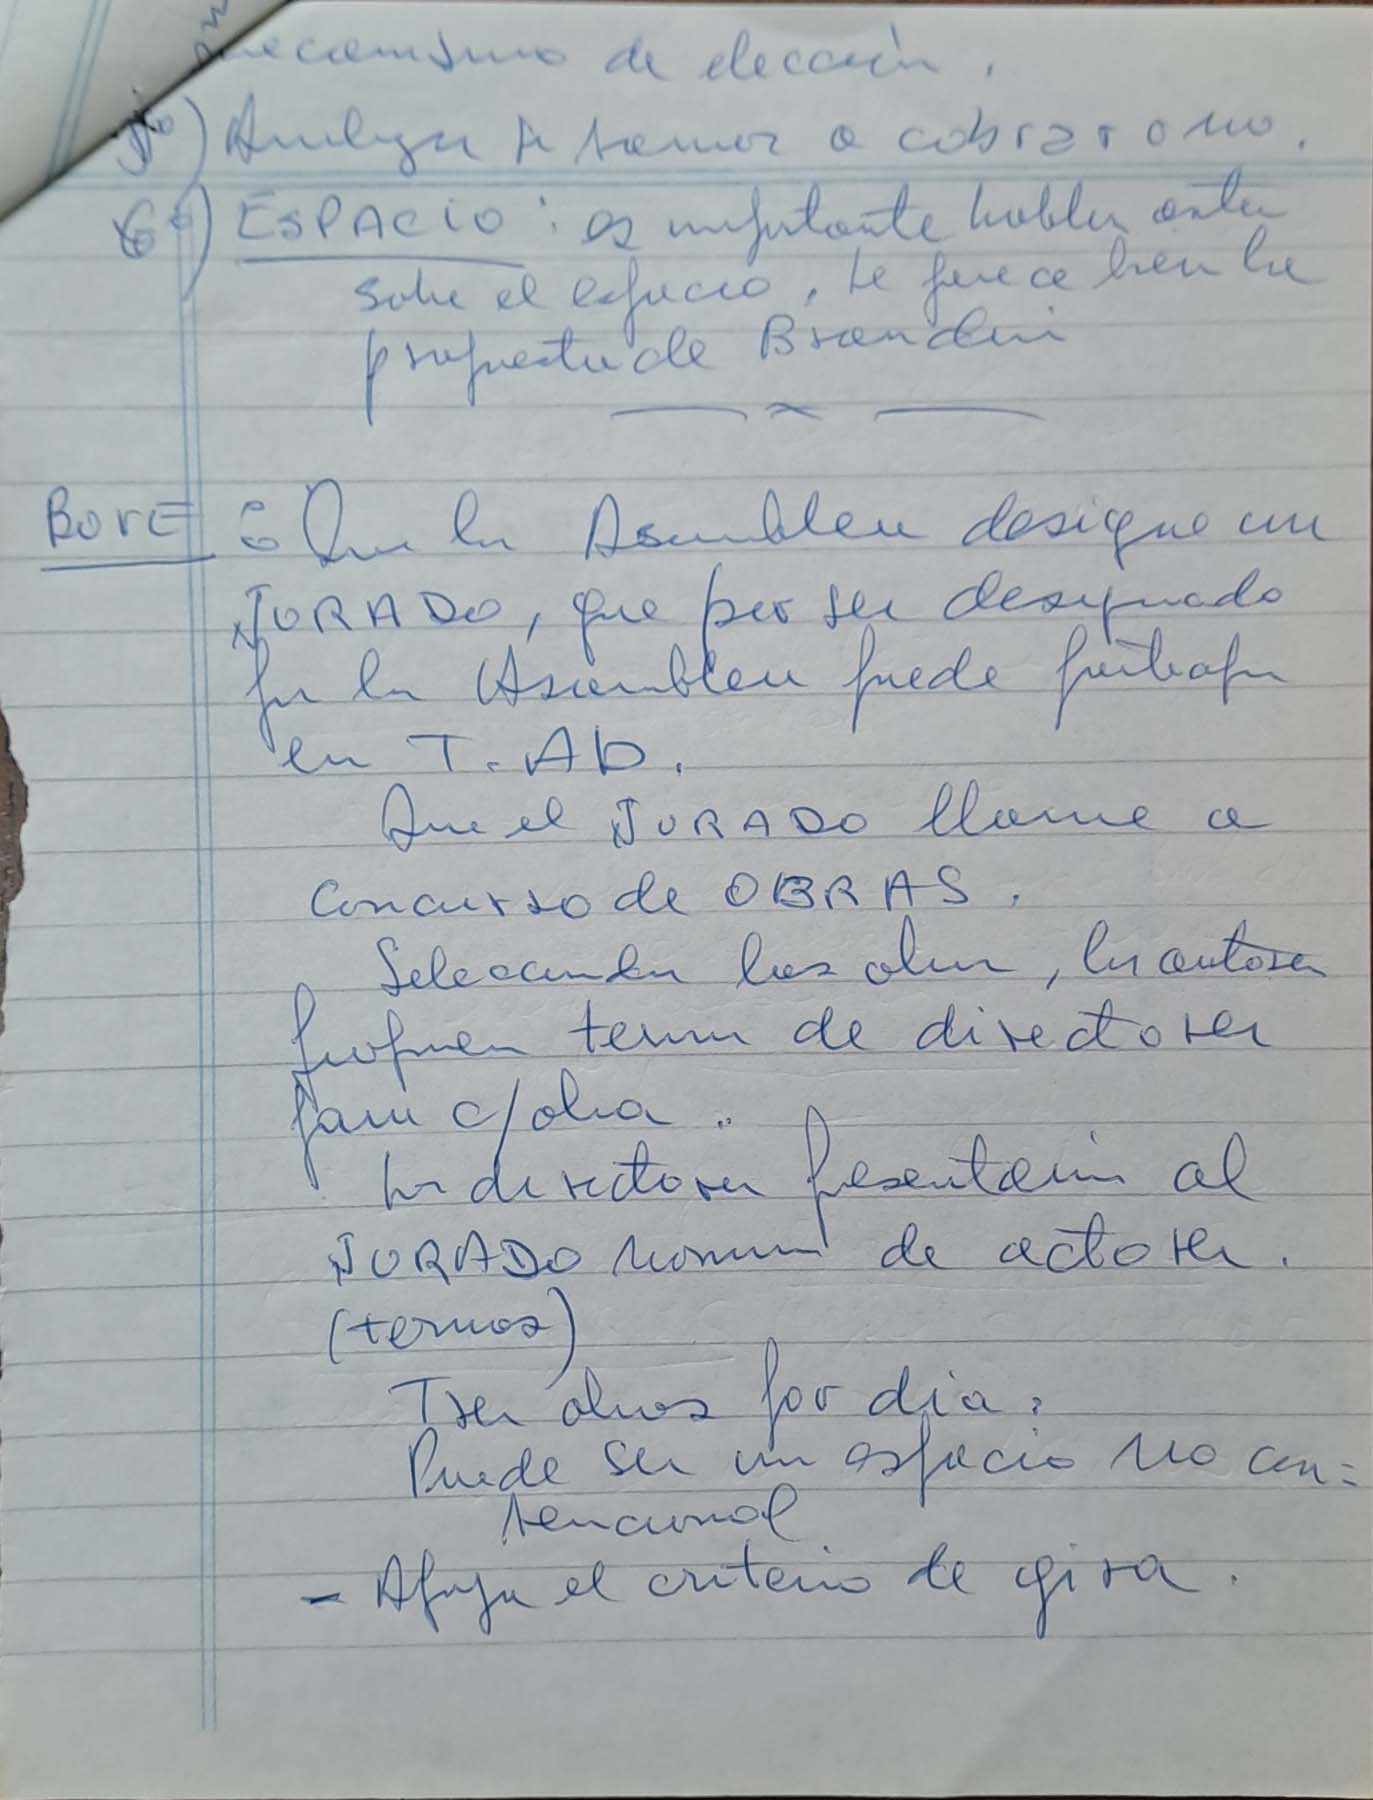 mecanismo de elección.
5º) Analizar si vamos a cobrar o no.
6º) ESPACIO: es importante hablar antes
sobre el espacio, le parece bien la
propuesta de Brandoni
BOVE: Que la Asamblea designe un
JURADO, que por ser designado
por la Asamblea puede participar
en T. Ab.
Que el JURADO llame a
concurso de OBRAS.
Seleccionadas las obras, los autores
proponen ternas de directores
para c/obra.
Los directores presentarán al
JURADO nómina de actores.
(ternas)
Tres obras por día.
Puede ser un espacio no con=
vencional
- Apoya el criterio de gira.